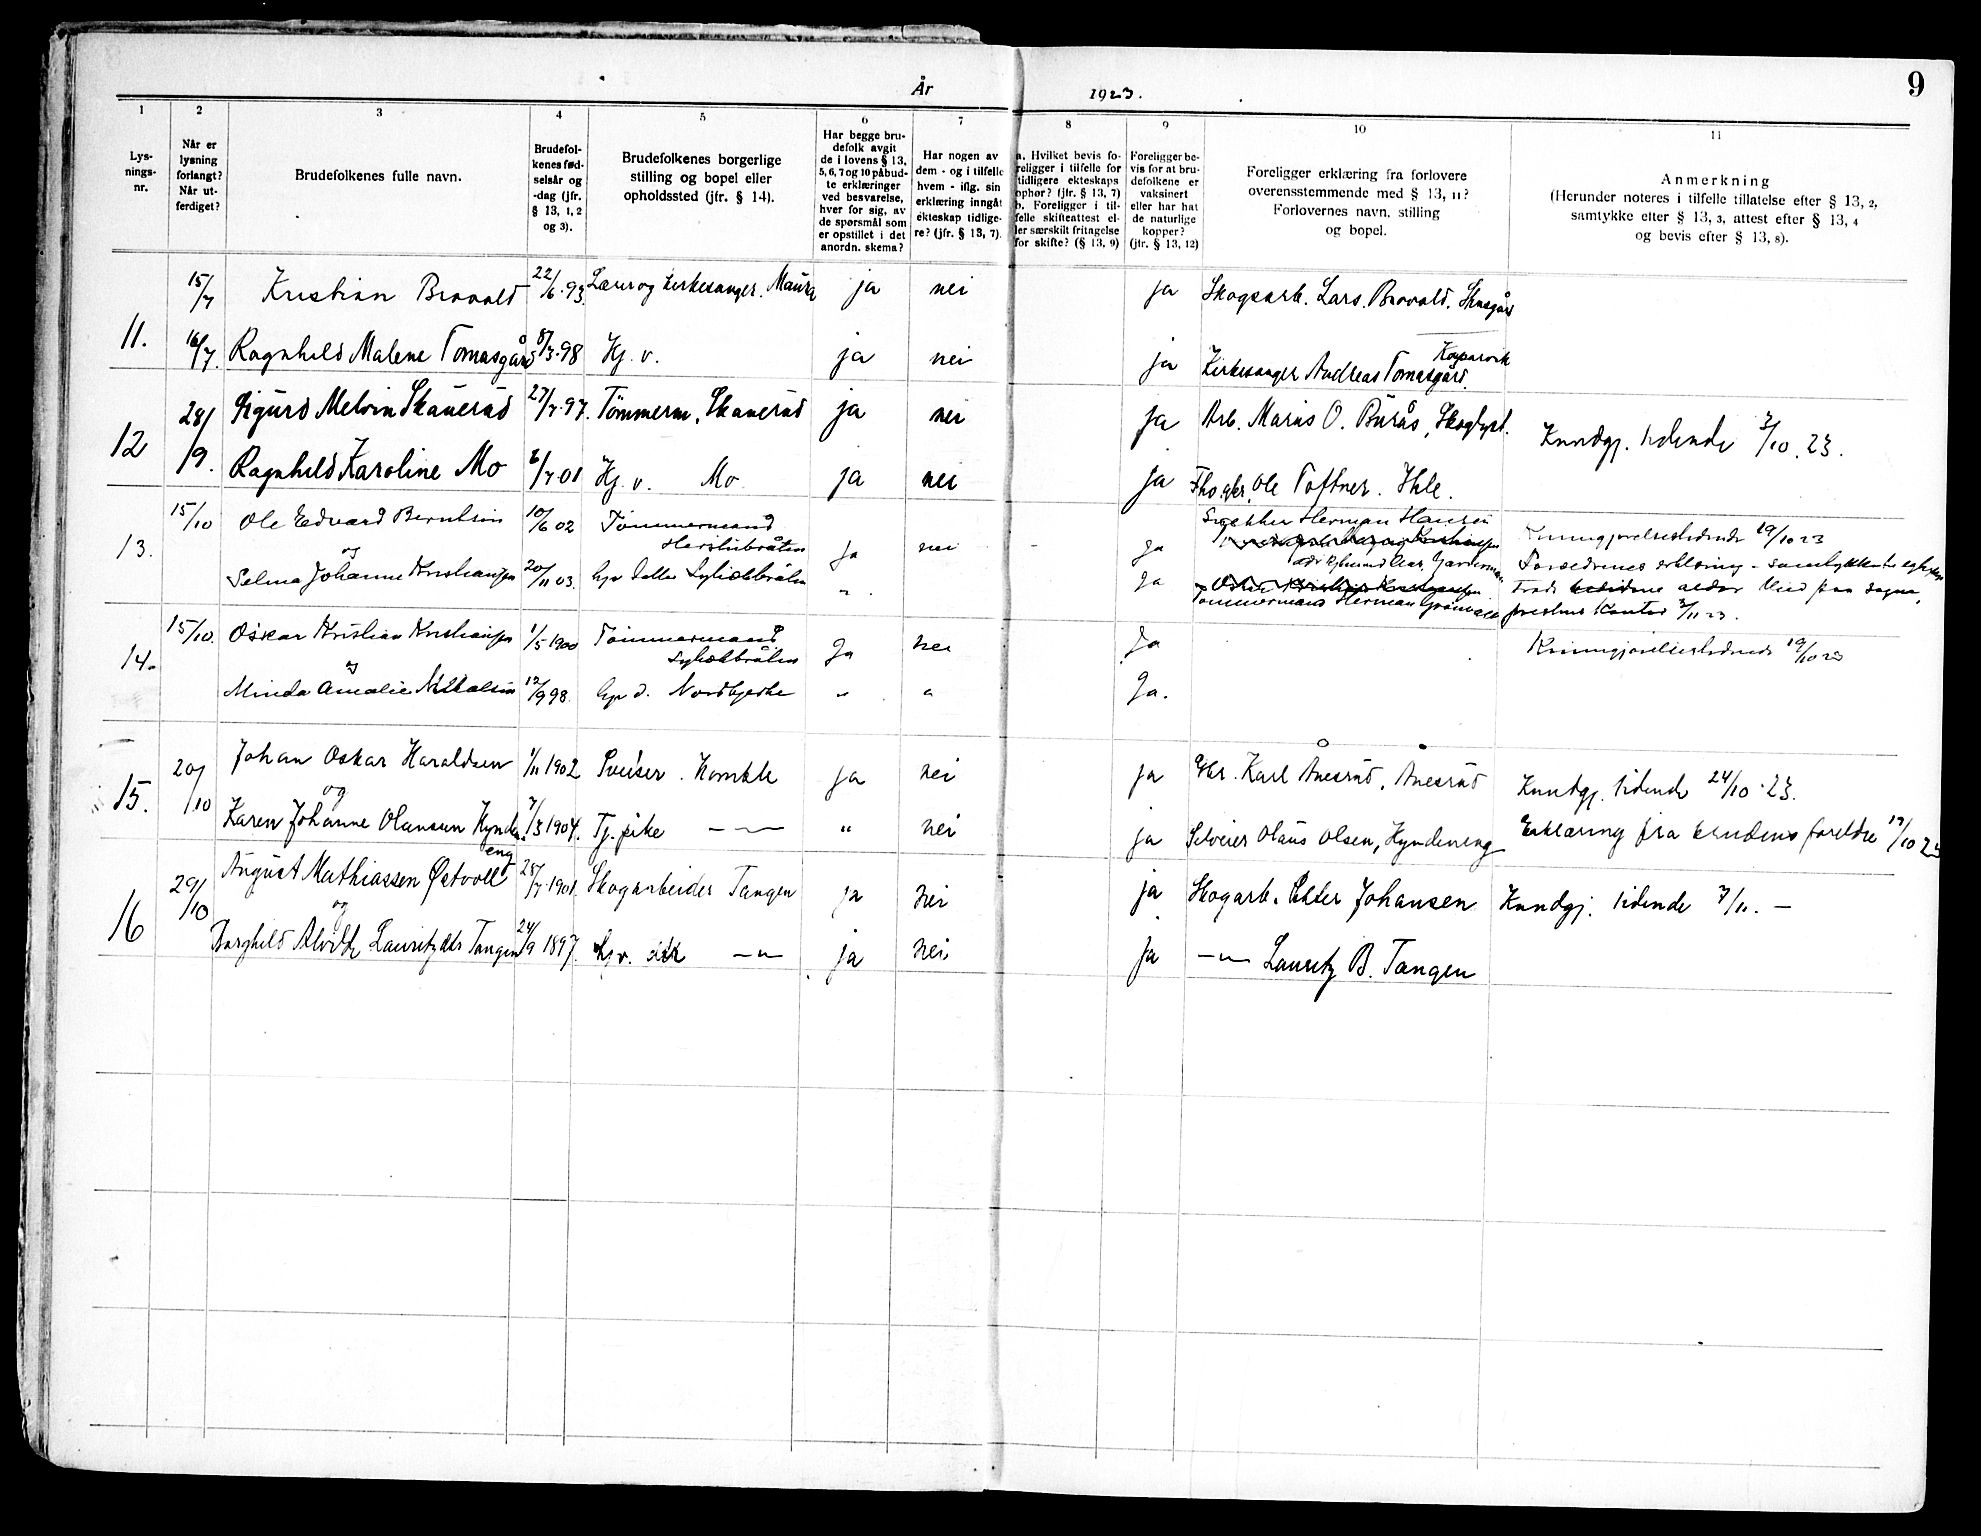 År 1923.
9
1 2 3 4 5 6 7 8 9 10 11
Lys-
nings-
nr.
Når er
lysning
forlangt?
Når ut-
ferdiget?
Brudefolkenes fulle navn.
Brudefol-
kenes fød-
selsår og
-dag (jfr.
§ 13, 1, 2
og 3).
Brudefolkenes borgerlige
stilling og bopel eller
opholdssted (jfr. § 14).
Har begge bru-
defolk avgit
de i lovens § 13,
5, 6, 7 og 10 påbud-
te erklæringer
ved besvarelse,
hver for sig, av
de spørsmål som
er opstillet i det
anordn. skema?
Har nogen av
dem - og i tilfelle
hvem - iflg. sin
erklæring inngåt
ekteskap tidlige-
re? (jfr. § 13, 7).
a. Hvilket bevis fo-
religger i tilfelle for
tidligere ekteskaps
ophør? (jfr. § 13, 7)
b. Foreligger i til-
felle skifteattest el-
ler særskilt fritagelse
for skifte? (§ 13, 9)
Foreligger be-
vis for at bru-
defolkene er
vaksinert
eller har hat
de naturlige
kopper?
(jfr. § 13, 12)
Foreligger erklæring fra forlovere
overensstemmende med § 13, 11?
Forlovernes navn, stilling
og bopel.
Anmerkning
(Herunder noteres i tilfelle tillatelse efter § 13, 2,
samtykke efter § 13, 3, attest efter § 13, 4
og bevis efter § 13, 8).
11.
15/7 Kristian Brovold 22/6.93 Lærer og kirkesanger. Maura ja nei ja Skogsarb. Lars Brovold.
16/7. Ragnhild Malene Tomasgård 8/3.98 Hj. v. ja nei ja Kirkesanger Andreas Tomasgård.
12
28/9. Sigurd Melvin Skanerud 27/7.97. Tømmerm. Skanerud ja nei ja Arb. Marius O. Burås, Kundgj. tidende 3/10.23.
Ragnhild Karoline Mo 6/7.01 Hj. v. Mo ja nei ja Ole Toftner. Ihle.
13.
15/10 Ole Edvard Berntsen 10/6 02 Tømmermand ja nei - ja Snekker Herman Hansen Kunngjørelsestidende 19/10 23
og
Selma Johanne Kristiansen 20/11 03. " ja
Tømmermand Herman
prestens kontor 3/11 23.
14.
15/10. Oskar Kristian Kristiansen 1/5 1900 Tømmermand Ja nei Ja Kunngjørelsestidende 19/10 23
og
Minda Amalie 12/9 98. Nordbjerke " " Ja.
15.
20/10 Johan Oskar Haraldsen 1/11 1902 Sveiser. ja nei ja Gbr. Karl Ånesrud, Ånesrud Kundgj. tidende 24/10.23.
og
Karen Johanne Olausen Kynden 7/3 1904. Tj. pike —"— " nei ja Selveier Olaus Olsen, Kyndeneng Erklæring fra brudens foreldre 17/10 23
eng
16
29/10 August Mathiassen Østvoll 1901. Skogarbeider Tangen ja nei ja Skogarb. Peder Johansen Kundgj. tidende 7/11. —
og
Borghild Alvilde Tangen 24/9 1897. —"— ja nei ja —"— Lauritz B. Tangen